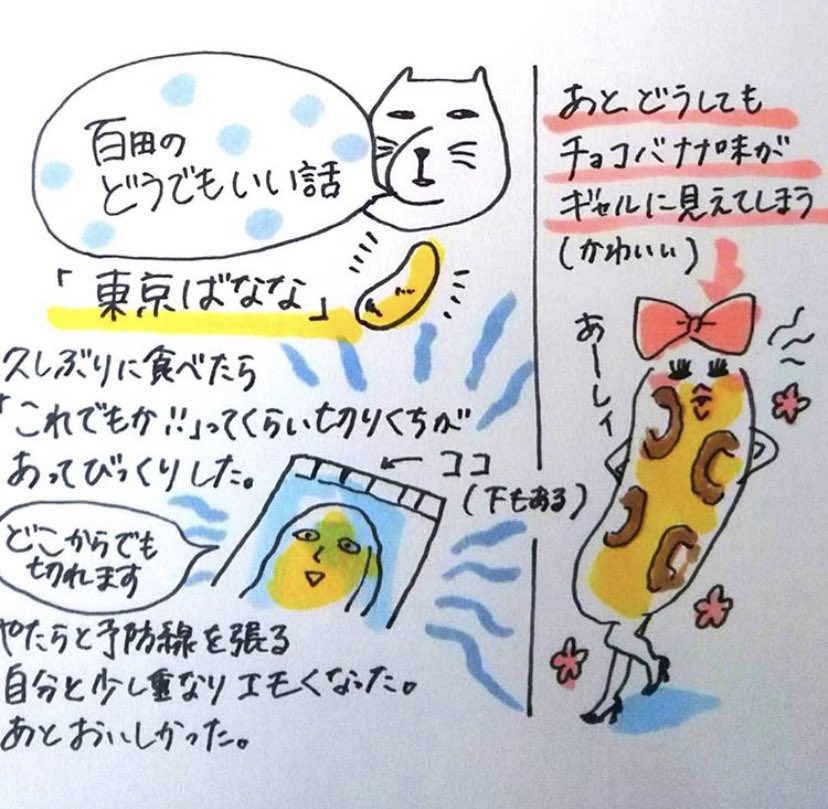 百田の
どうでもいい話
「東京ばなな」
久しぶりに食べたら
「これでもか!!」ってくらい切りくちが
あってびっくりした。
← ココ
(下もある)
どこからでも
切れます
やたらと予防線を張る
自分と少し重なりエモくなった。
あとおいしかった。
あと、どうしても
チョコバナナ味が
ギャルに見えてしまう
(かわいい)
あーしィ